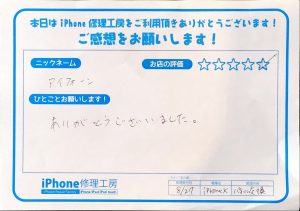 本日は iPhone 修理工房をご利用頂きありがとうございます!
ご感想をお願いします!
ニックネーム
アイフォーン
お店の評価
☆☆☆☆☆
ひとことお願いします!
ありがとうございいました。
iPhone修理工房
8/27
iPhoneX